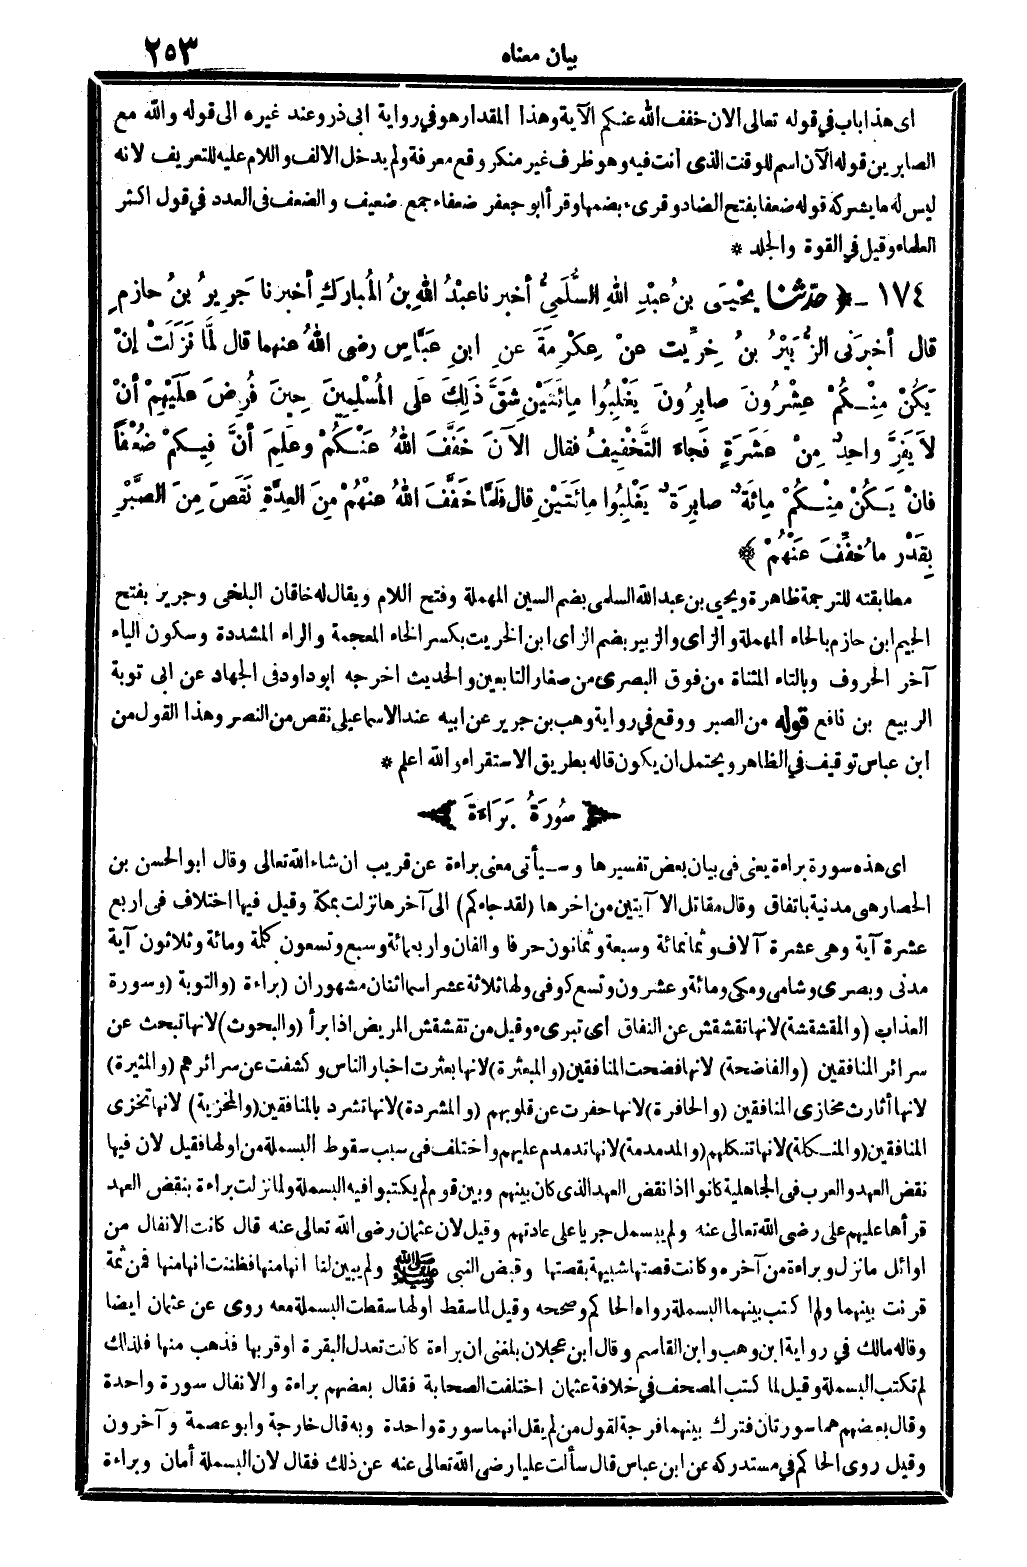 بيان معناه
٢٥٣
اى هذا باب في قوله تعالى الان خفف الله عنكم الآية وهذا المقدار هو في رواية ابى ذر وعند غيره الى قوله والله مع
الصابرين قوله الآن اسم للوقت الذى انت فيه وهو ظرف غير متمكن وقع معرفة ولم يدخل الالف واللام عليه للتعريف لانه
ليس له ما يشركه قوله ضعفا بفتح الضاد وقرىء بضمها وقرأ ابو جعفر ضعفاء جمع ضعيف والضعف فى العدد في قول اكثر
العلماء وقيل في القوة والجلد *
١٧٤ - ﴿ حدثنا يَحْيَى بنُ عبْدِ اللهِ السُّلَمِىُّ أخبرنا عبْدُ اللهِ بنُ المُباركِ أخبرنا جَرِيرُ بنُ حازمٍ
قال أخبرَنى الزُّبَيْرُ بنُ خِرِّيت عنْ عِكْرِمَةَ عنِ ابنِ عبَّاسٍ رضى اللهُ عنهما قال لمَّا نَزَلَتْ إنْ
يَكُنْ مِنْكُمْ عِشْرُونَ صابِرُونَ يَغْلِبُوا مِائَتَيْنِ شَقَّ ذَلِكَ علَى المُسْلِمِينَ حِينَ فُرِضَ علَيْهِمْ أنْ
لاَ يَفِرَّ واحِدٌ مِنْ عَشَرَةٍ فَجاءَ التَّخْفِيفُ فقال الآنَ خَفَّفَ اللهُ عَنْكُمْ وعلِمَ أنَّ فِيكمْ ضُعْفاً
فانْ يَكُنْ مِنْكُمْ مِائَةٌ صابِرَةٌ يَغْلِبُوا مِائَتَيْنِ قال فلَمَّا خَفَّفَ اللهُ عنهُمْ مِنَ العِدَّةِ نَقَصَ مِنَ الصَّبْرِ
بِقَدْرِ ما خُفِّفَ عَنْهُمْ ﴾
مطابقته للترجمة ظاهرة ويحيى بن عبد الله السلمى بضم السين المهملة وفتح اللام ويقال له خاقان البلخى وجرير بفتح
الجيم ابن حازم بالحاء المهملة والزاى والزبير بضم الزاى ابن الخريت بكسر الخاء المعجمة والراء المشددة وسكون الياء
آخر الحروف وبالتاء المثناة من فوق البصرى من صغار التابعين والحديث اخرجه ابو داود فى الجهاد عن ابى توبة
الربيع بن نافع قوله من الصبر ووقع في رواية وهب بن جرير عن ابيه عند الاسماعيلى نقص من النصر وهذا القول من
ابن عباس توقيف في الظاهر ويحتمل ان يكون قاله بطريق الاستقراء والله اعلم *
سُورَةُ بَرَاءَةَ
اى هذه سورة براءة يعنى فى بيان بعض تفسيرها وسيأتى معنى براءة عن قريب ان شاء الله تعالى وقال ابو الحسن بن
الحصار هى مدنية باتفاق وقال مقاتل الا آيتين من اخرها (لقد جاءكم) الى آخرها نزلت بمكة وقيل فيها اختلاف فى اربع
عشرة آية وهى عشرة آلاف وثمانمائة وسبعة وثمانون حرفا والفان واربعمائة وسبع وتسعون كلمة ومائة وثلاثون آية
مدنى وبصرى وشامى ومكى ومائة وعشرون وتسع كوفى ولها ثلاثة عشر اسما اثنان مشهوران (براءة (والتوبة (وسورة
العذاب (والمقشقشة) لانها تقشقش عن النفاق اى تبرىء وقيل من تقشقش المريض اذا برأ (والبحوث) لانها تبحث عن
سرائر المنافقين (والفاضحة) لانها فضحت المنافقين (والمبعثرة) لانها بعثرت اخبار الناس وكشفت عن سرائرهم (والمثيرة)
لانها أثارت مخازى المنافقين (والحافرة) لانها حفرت عن قلوبهم (والمشردة) لانها تشرد بالمنافقين (والمخزية) لانها تخزى
المنافقين (والمنكلة) لانها تنكلهم (والمدمدمة) لانها تدمدم عليهم واختلف فى سبب سقوط البسملة من اولها فقيل لان فيها
نقض العهد والعرب فى الجاهلية كانوا اذا نقض العهد الذى كان بينهم وبين قوم لم يكتبوا فيه البسملة ولما نزلت براءة بنقض العهد
قرأها عليهم على رضى الله تعالى عنه ولم يبسمل جريا على عادتهم وقيل لان عثمان رضى الله تعالى عنه قال كانت الانفال من
اوائل ما نزل وبراءة من آخره وكانت قصتها شبيهة بقصتها وقبض النبى ﷺ ولم يبين لنا انها منها فظننت انها منها فمن ثمة
قرنت بينهما ولم اكتب بينهما البسملة رواه الحاكم وصححه وقيل لما سقط اولها سقطت البسملة معه روى عن عثمان ايضا
وقاله مالك في رواية ابن وهب وابن القاسم وقال ابن عجلان بلغنى ان براءة كانت تعدل البقرة او قربها فذهب منها فلذلك
لم تكتب البسملة وقيل لما كتب المصحف في خلافة عثمان اختلفت الصحابة فقال بعضهم براءة والانفال سورة واحدة
وقال بعضهم هما سورتان فترك بينهما فرجة لقول من لم يقل انهما سورة واحدة وبه قال خارجة وابو عصمة وآخرون
وقيل روى الحاكم في مستدركه عن ابن عباس قال سألت عليا رضى الله تعالى عنه عن ذلك فقال لان البسملة أمان وبراءة